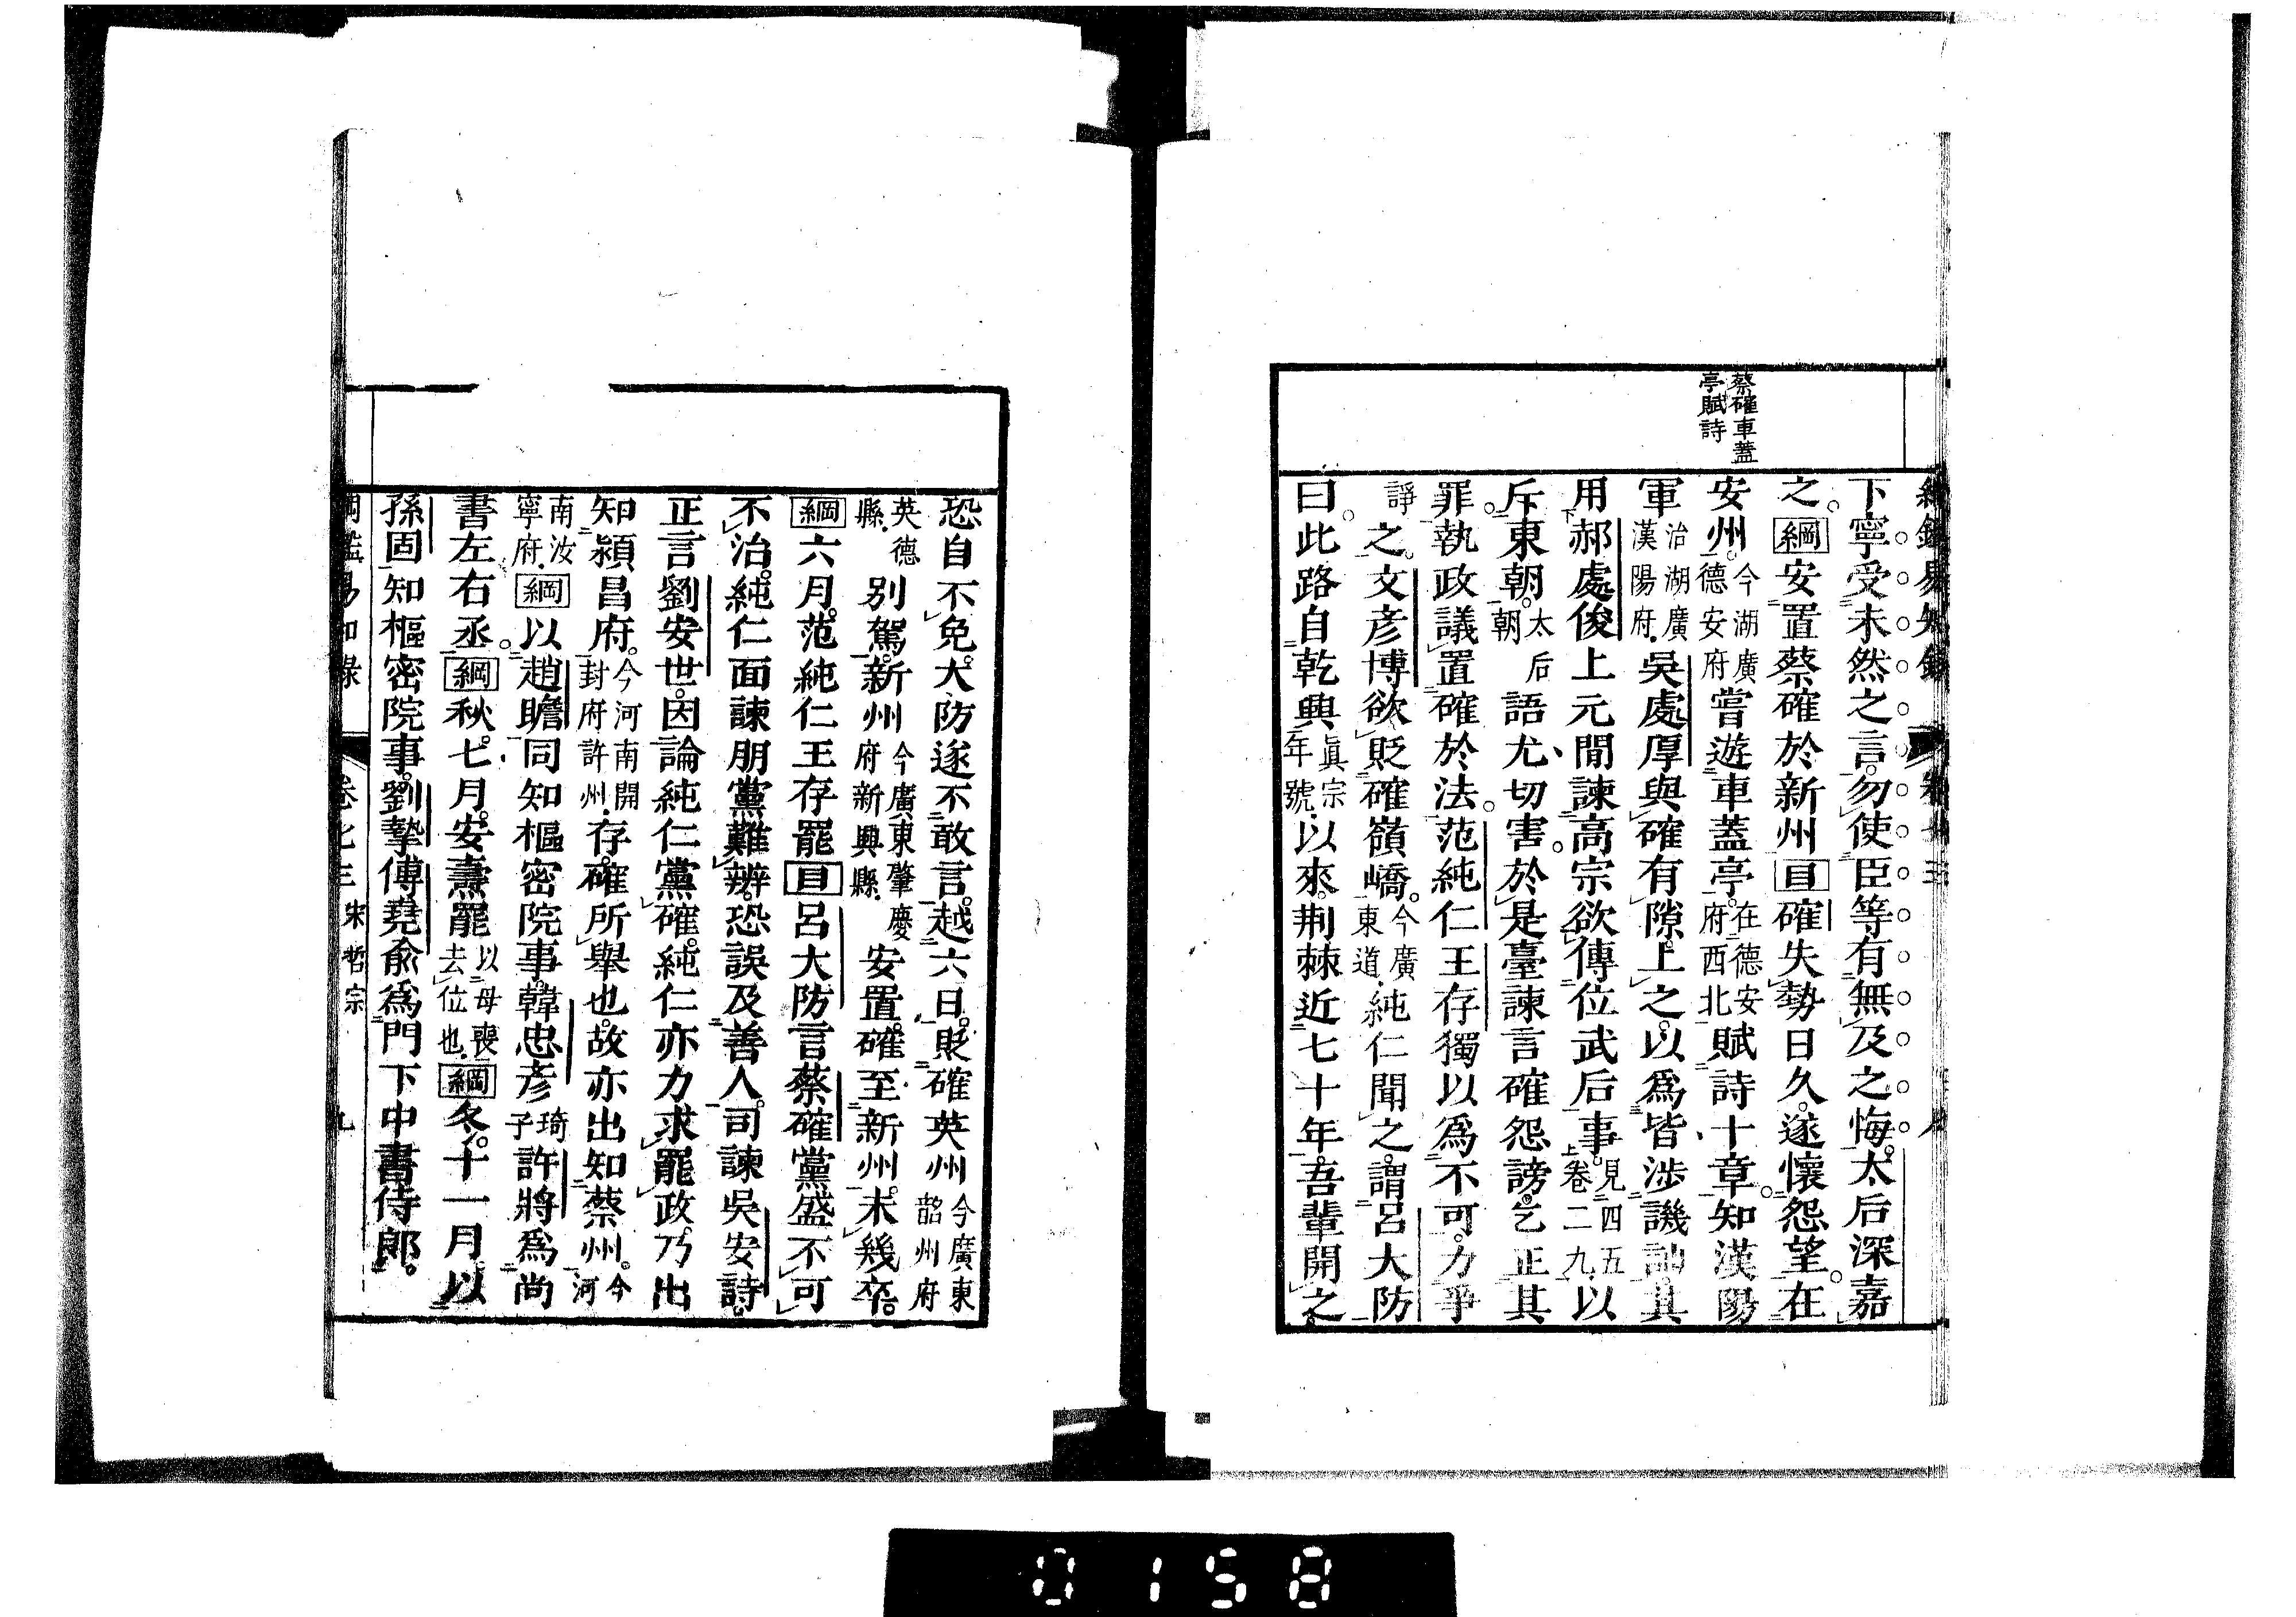 蔡確車蓋
亭賦詩
下寧受未然之言勿使臣等有無及之悔太后深嘉
之綱安置蔡確於新州目確失勢日久遂懷怨望在
安州今湖廣德安府嘗遊車蓋亭在德安府西北賦詩十章知漢陽
軍治湖廣漢陽府吳處厚與確有隙上之以爲皆涉譏訕其
用郝處俊上元閒諫高宗欲傳位武后事見四五上卷二九以
斥東朝太后朝語尤切害於是臺諫言確怨謗乞正其
罪執政議置確於法范純仁王存獨以爲不可力爭
諍之文彦博欲貶確嶺嶠今廣東道純仁聞之謂呂大防
曰此路自乾興眞宗年號以來荆棘近七十年吾輩開之
恐自不免大防遂不敢言越六日貶確英州今廣東韶州府
英德縣別駕新州今廣東肇慶府新興縣安置確至新州未幾卒
綱六月范純仁王存罷目呂大防言蔡確黨盛不可
不治純仁面諫朋黨難辨恐誤及善人司諫吳安詩
正言劉安世因論純仁黨確純仁亦力求罷政乃出
知潁昌府今河南開封府許州存確所舉也故亦出知蔡州今河
南汝寧府綱以趙瞻同知樞密院事韓忠彦琦子許將爲尚
書左右丞綱秋七月安燾罷以母喪去位也綱冬十一月以
孫固知樞密院事劉摯傅堯俞爲門下中書侍郎
綱鑑易知錄 宋哲宗 九
0158